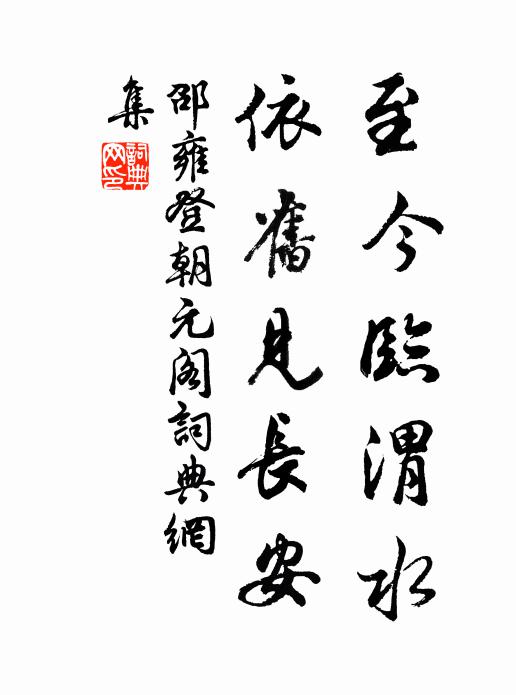 至今臨渭水
依舊見長安
邵雍登朝元阁詞典網
集
詞典
网印